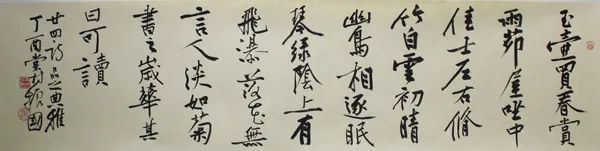 玉壺買春賞
雨茆屋坐中
佳士左右脩
竹白雲初晴
幽鳥相逐眠
琴綠陰上有
飛瀑落花無
言人淡如菊
書之歲華其
曰可讀
廿四詩品之典雅
丁酉國